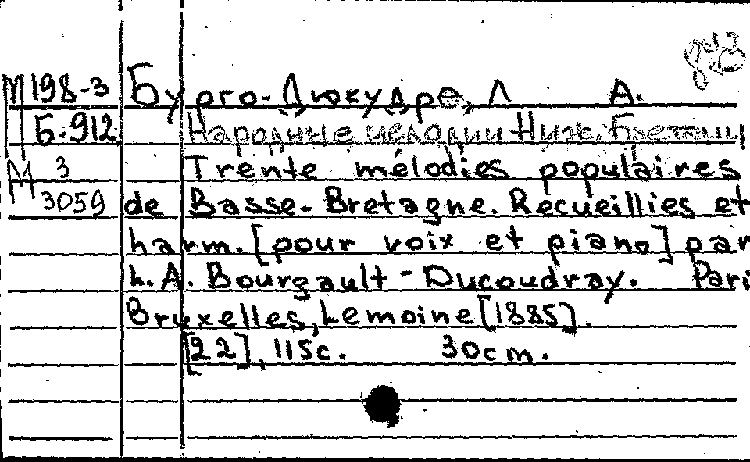 М 198-3 Бурго-Дюкудре, Л А.
Б-912 Народные мелодии Ниж. Бретани
М 3 Trente mélodies populaires
3059 de Basse-Bretagne. Recueillies et
harm. [pour voix et piano] par
L.A. Bourgault-Ducoudray. Pari
Bruxelles, Lemoine [1885].
[22], 115c. 30cm.